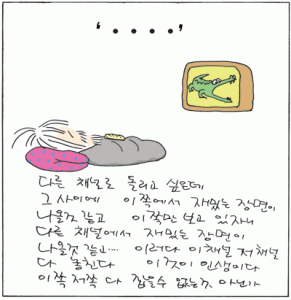 ‘ . . . . ’
다른 채널로 돌리고 싶은데
그 사이에 이쪽에서 재밌는 장면이
나올것 같고 이쪽만 보고 있자니
다른 채널에서 재밌는 장면이
나올것 같고... 이러다 이채널 저채널
다 놓친다 이것이 인생이다
이쪽 저쪽 다 잡을수 없는것 아닌가